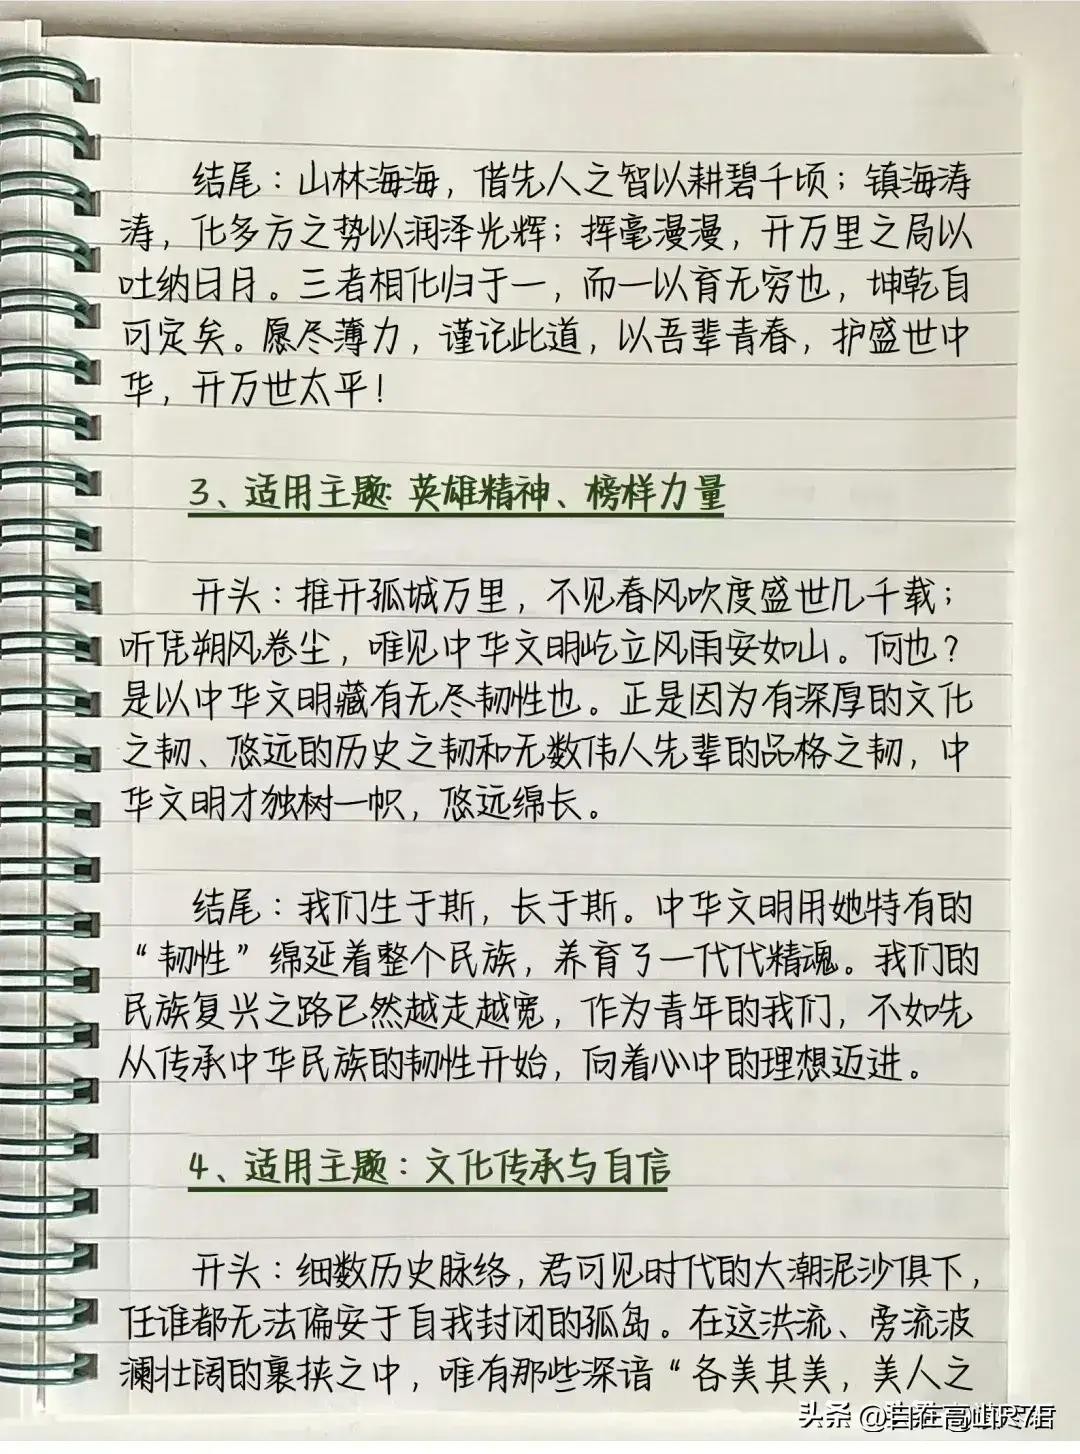 结尾：山林海海，借先人之智以耕碧千顷；镇海涛
涛，化多方之势以润泽光辉；挥毫漫漫，开万里之局以
吐纳日月。三者相化归于一，而一以育无穷也，坤乾自
可定矣。愿尽薄力，谨记此道，以吾辈青春，护盛世中
华，开万世太平！
3、适用主题：英雄精神、榜样力量
开头：推开孤城万里，不见春风吹度盛世几千载；
听凭朔风卷尘，唯见中华文明屹立风雨安如山。何也？
是以中华文明藏有无尽韧性也。正是因为有深厚的文化
之韧、悠远的历史之韧和无数伟人先辈的品格之韧，中
华文明才独树一帜，悠远绵长。
结尾：我们生于斯，长于斯。中华文明用她特有的
“韧性”绵延着整个民族，养育了一代代精魂。我们的
民族复兴之路已然越走越宽，作为青年的我们，不如先
从传承中华民族的韧性开始，向着心中的理想迈进。
4、适用主题：文化传承与自信
开头：细数历史脉络，君可见时代的大潮泥沙俱下，
任谁都无法偏安于自我封闭的孤岛。在这洪流、旁流波
澜壮阔的裹挟之中，唯有那些深谙“各美其美，美人之
头条 @自在高山R7E